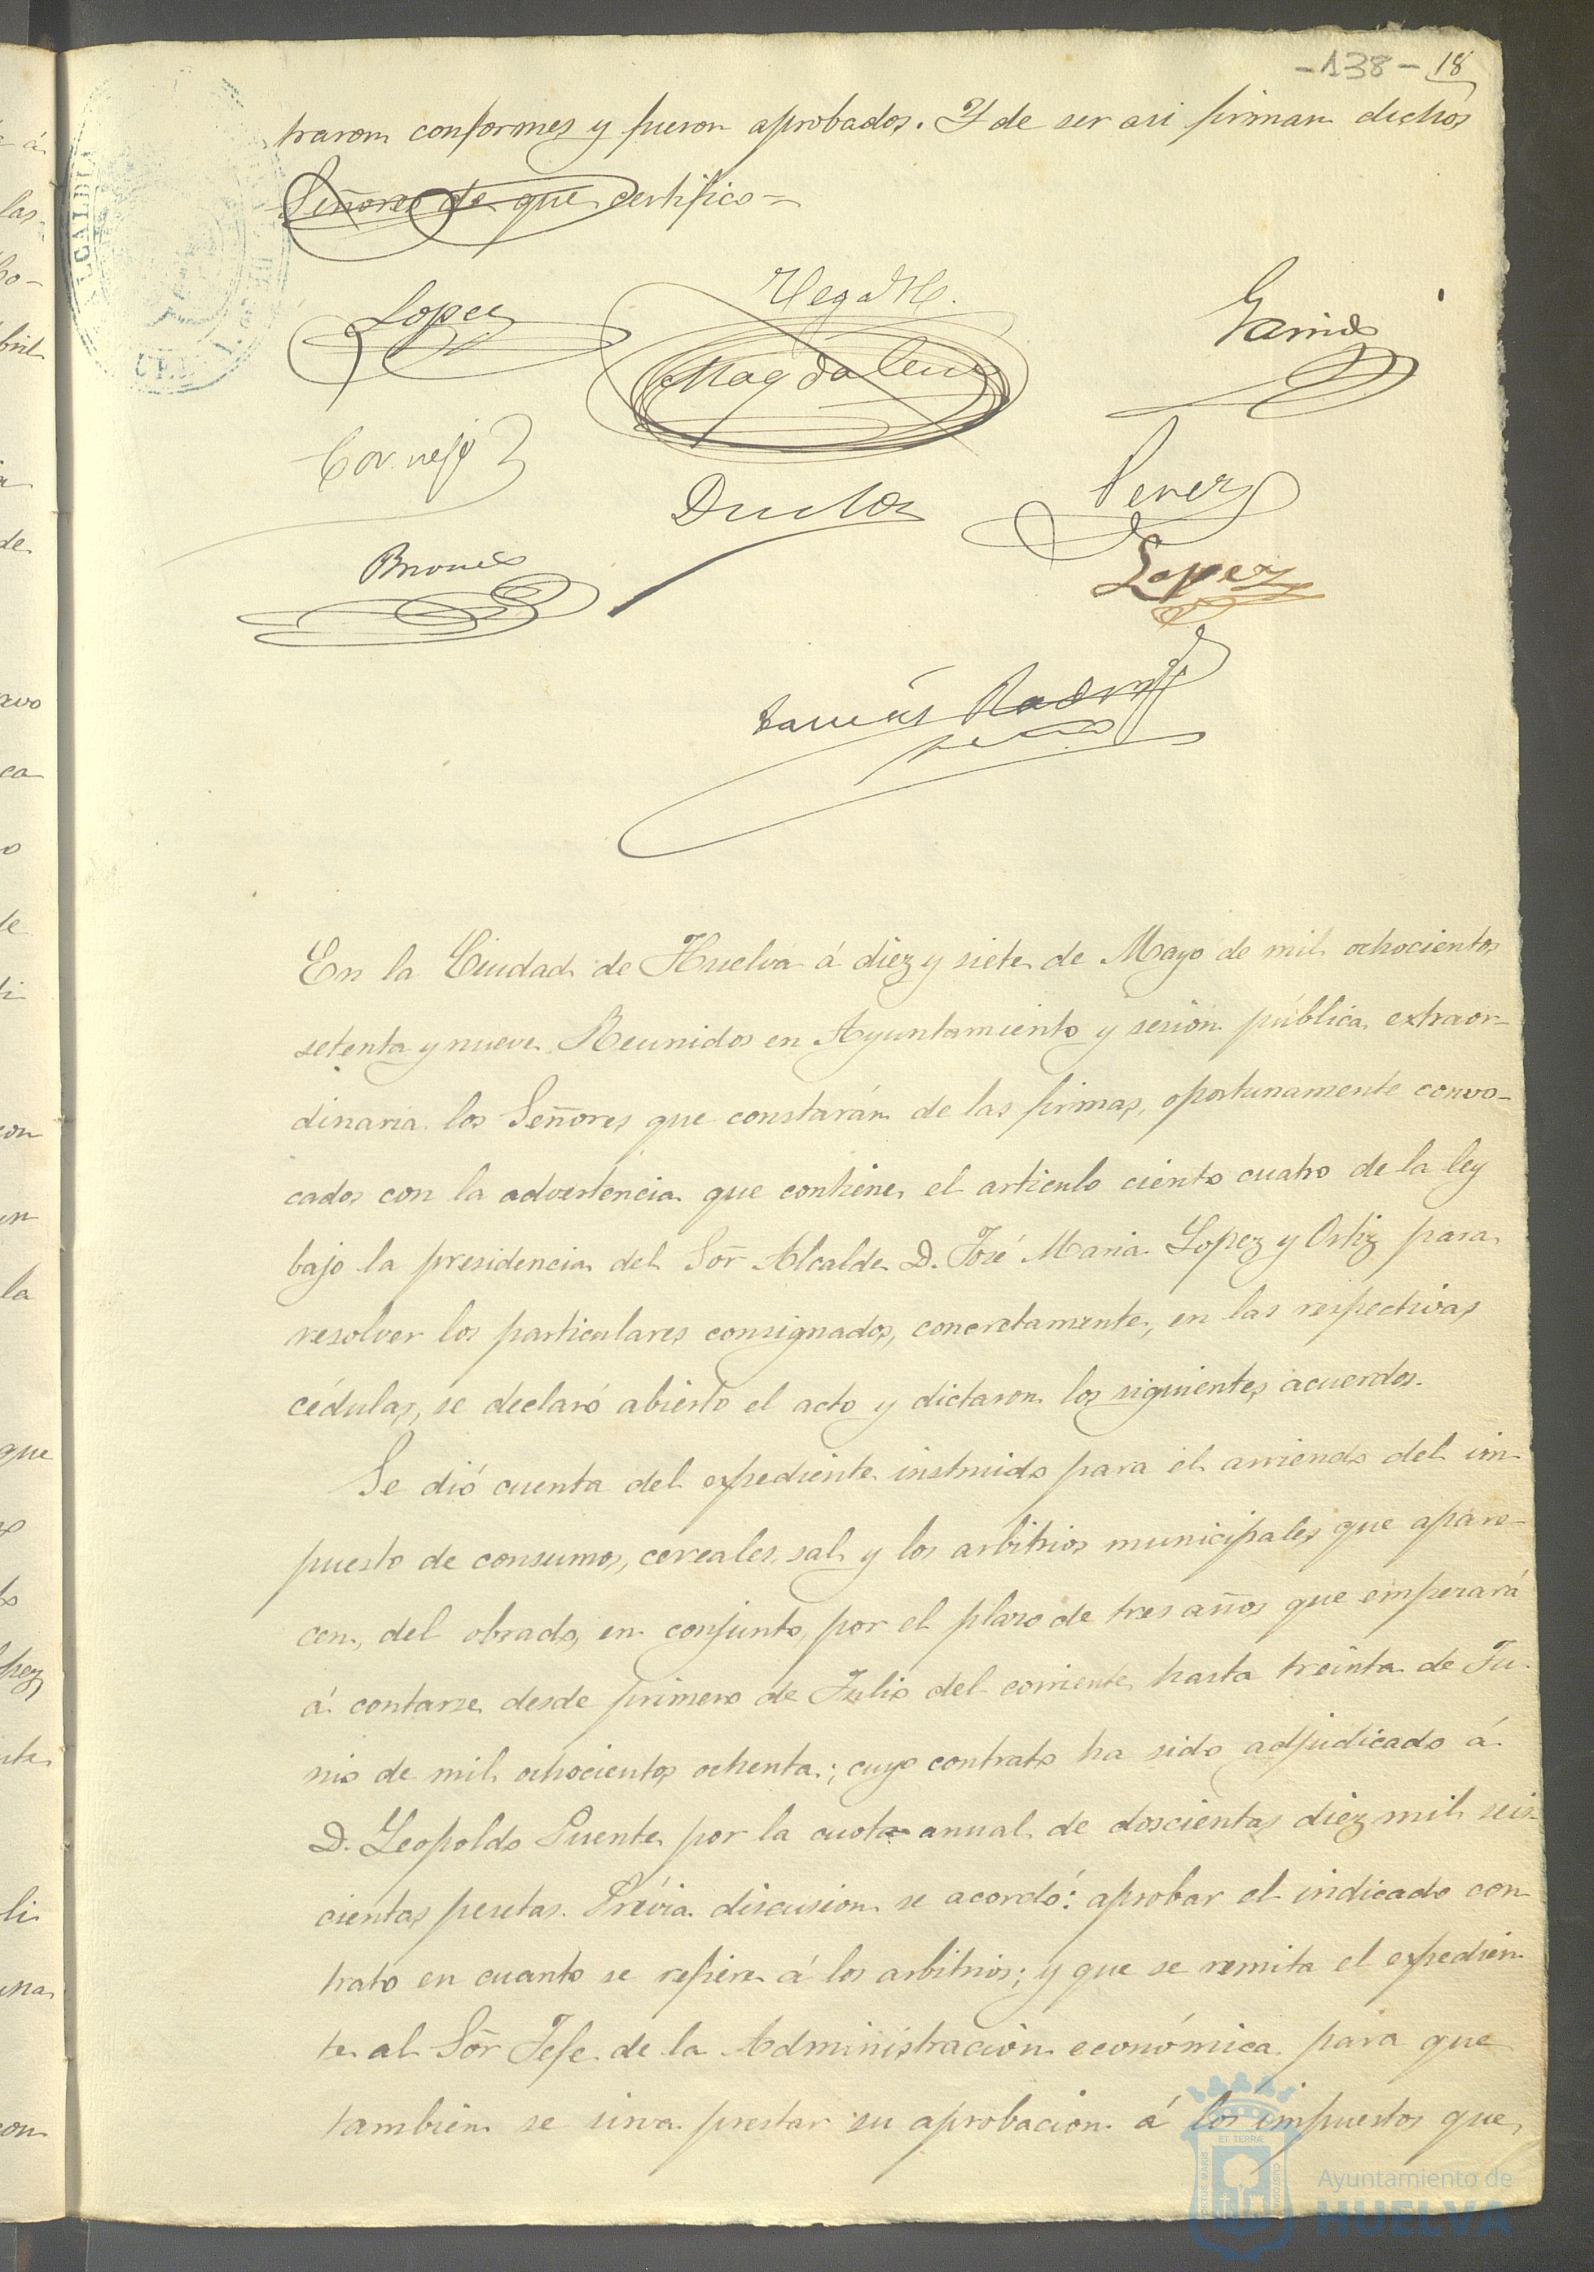 -138- 18
traron conformes y fueron aprobados. Y de ser asi firman dichos
Señores de que certifico=
Lopez
Vega M.
Garrido
Magdalena
Cornejo
Perez
Lopez
Briones
Tomás Rodrig
En la Ciudad de Huelva á diez y siete de Mayo de mil ochocientos
setenta y nueve. Reunidos en Ayuntamiento y sesion pública extraor-
dinaria los Señores que constarán de las firmas, oportunamente convo-
cados con la advertencia que contiene el articulo ciento cuatro de la ley
bajo la presidencia del Sor Alcalde D. José Maria Lopez y Ortiz para
resolver los particulares consignados, concretamente, en las respectivas
cédulas, se declaró abierto el acto y dictaron los siguientes acuerdos.
Se dió cuenta del expediente instruido para el arriendo del im-
puesto de consumos, cereales, sal y los arbitrios municipales que apare-
cen, del obrado, en conjunto, por el plazo de tres años que empezará
á contarse desde primero de Julio del corriente hasta treinta de Ju-
nio de mil ochocientos ochenta; cuyo contrato ha sido adjudicado á
D. Leopoldo Puente por la cuota anual de doscientas diez mil seis-
cientas pesetas. Prévia discusion se acordó: aprobar el indicado con-
trato en cuanto se refiere á los arbitrios; y que se remita el expedien-
te al Sor Jefe de la Administracion económica para que
tambien se sirva prestar su aprobacion á los impuestos que
Ayuntamiento de
HUELVA